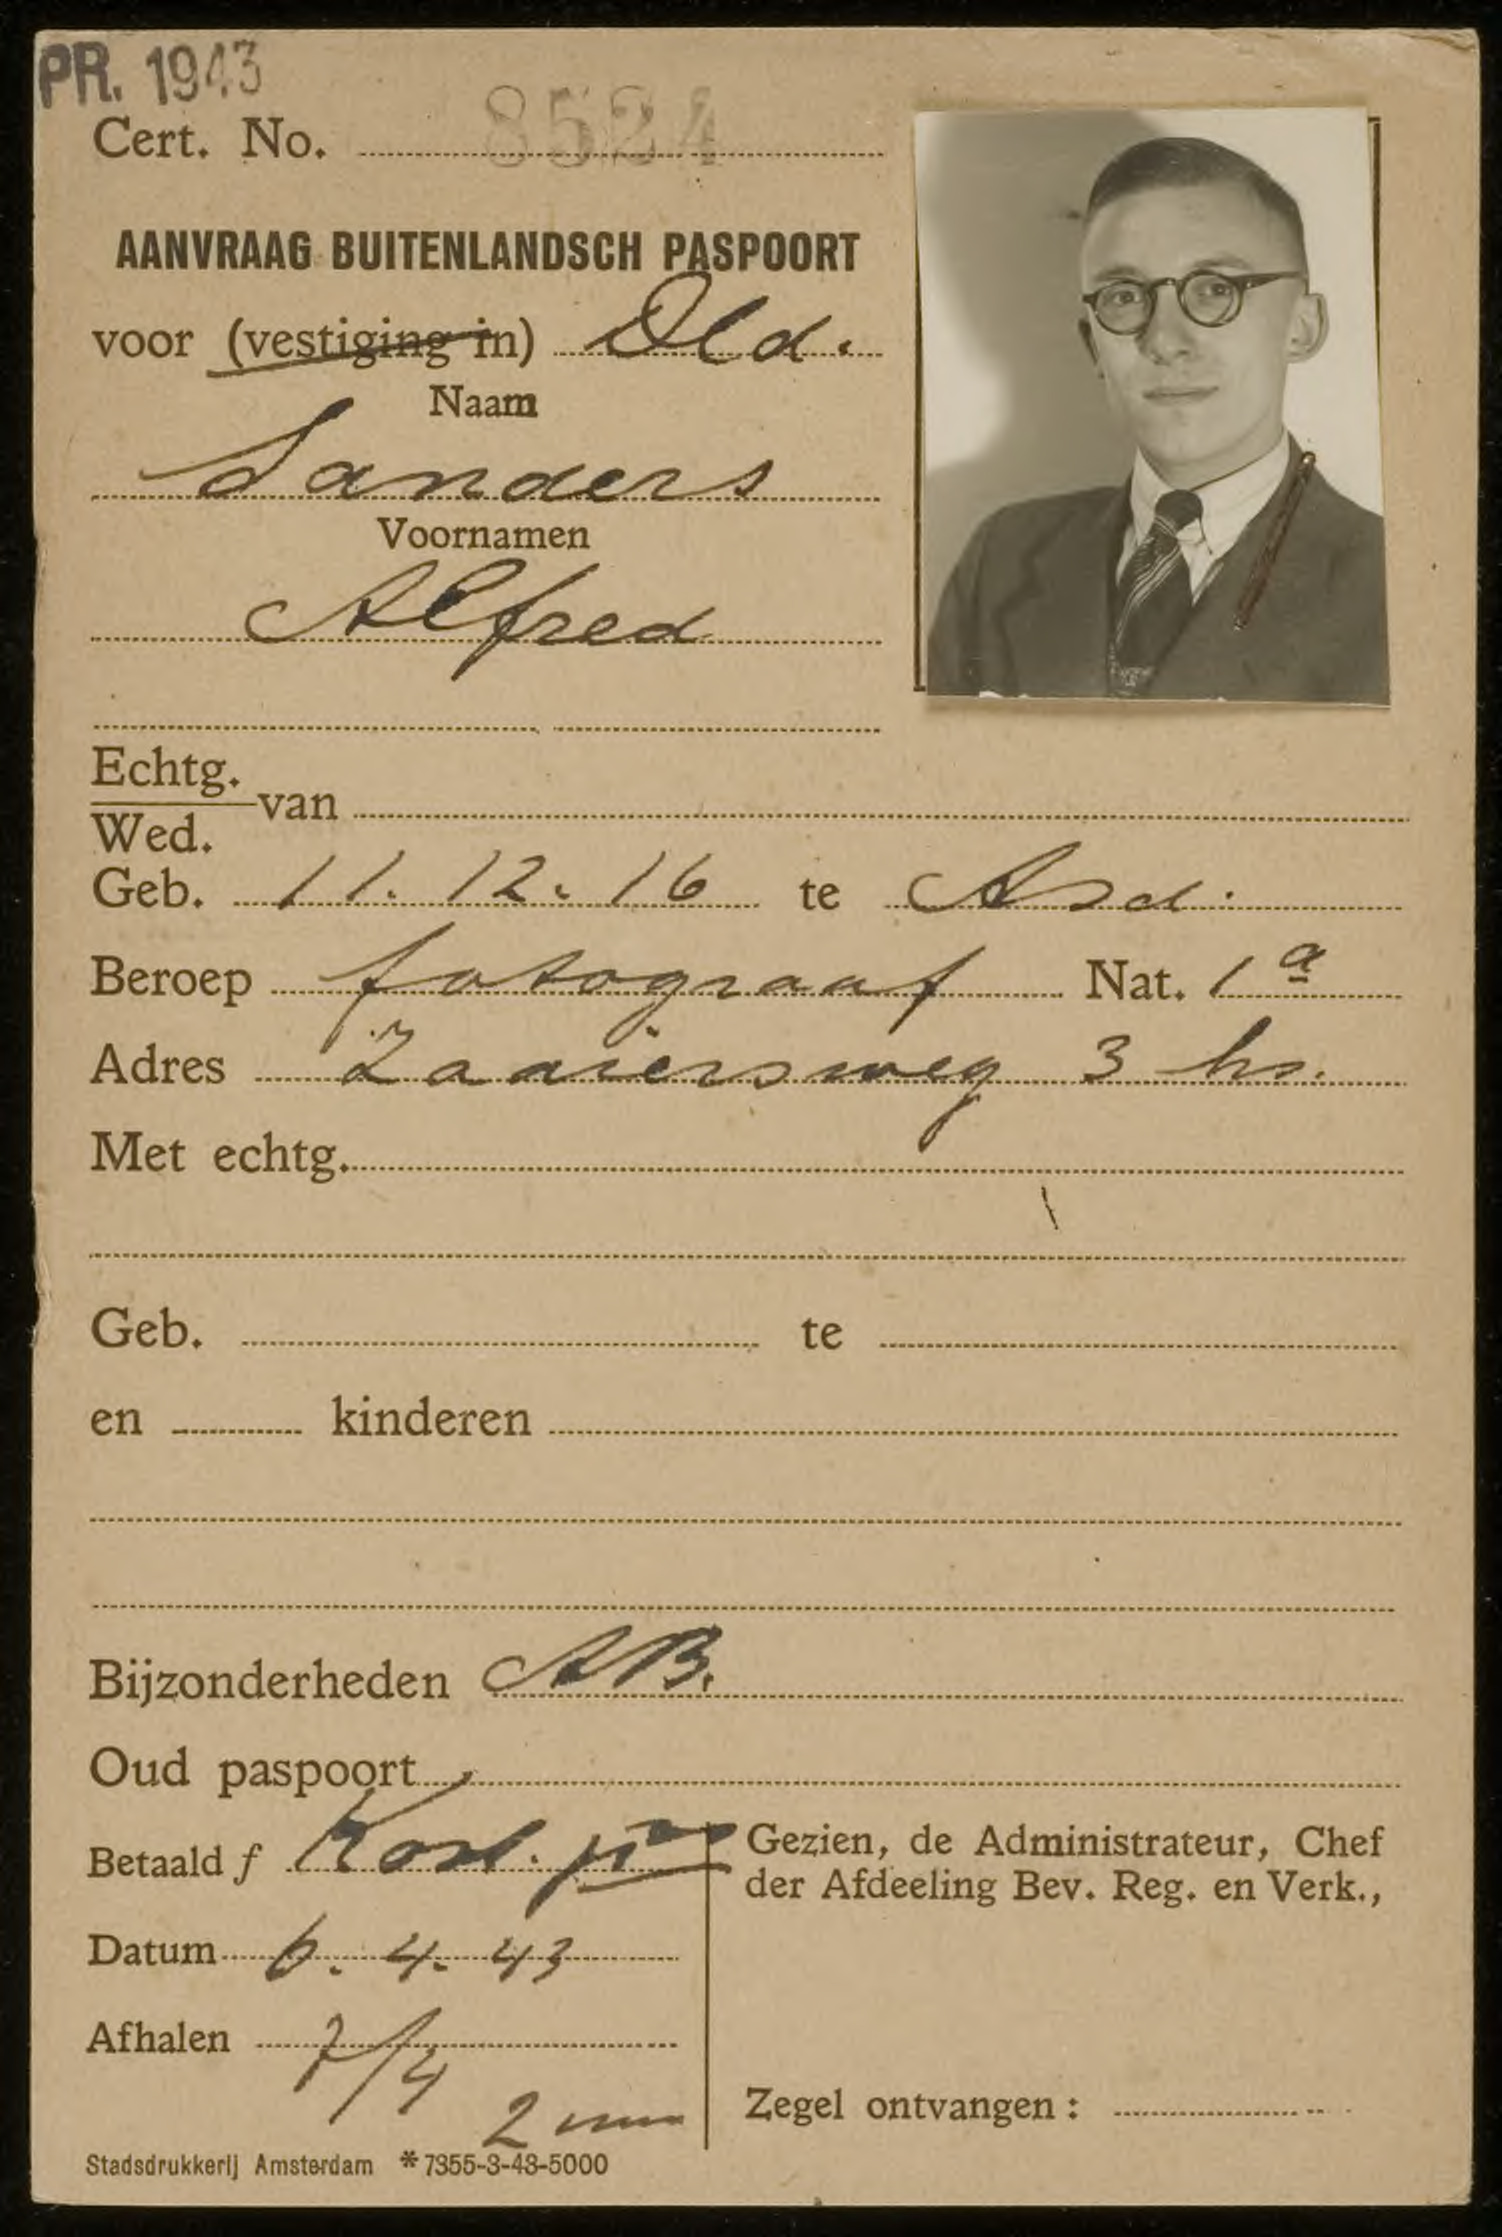 PR. 1943
Cert. No. 8524
AANVRAAG BUITENLANDSCH PASPOORT
voor (vestiging in) Dld.
Naam
Sanders
Voornamen
Alfred
Echtg.
van
Wed.
Geb. 11. 12. 16 te Asd.
Beroep fotograaf Nat. 1a
Adres Zaaiersweg 3 hs.
Met echtg.
Geb. te
en kinderen
Bijzonderheden AB.
Oud paspoort
Betaald f Kost.
Gezien, de Administrateur, Chef
der Afdeeling Bev. Reg. en Verk.,
Datum 6. 4. 43
Afhalen 7/4
2 uur
Zegel ontvangen :
Stadsdrukkerij Amsterdam * 7355-3-43-5000